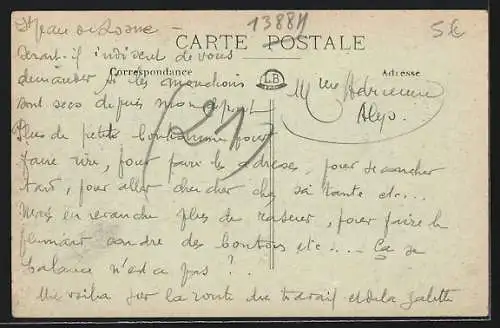 St Jean de Losne –
13884
5k
CARTE POSTALE
Serait-il indiscret de vous
Correspondance
LB
Adresse
demander si les mouchoirs
sont secs depuis mon départ
Mlle Adrienne
(21)
Plus de petits bonhommes pour
faire rire, pour faire les adresses, pour se coucher
tard, pour aller chercher chez sa tante etc...
Mais en revanche plus de raseur, pour faire le
coudre des boutons etc.... Ça se
balance n'est ce pas ?
Me voilà sur la route du travail et de la galette